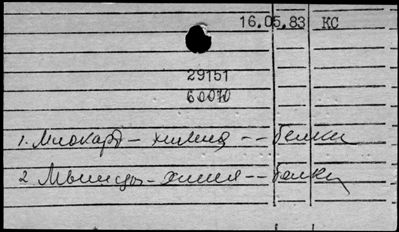 16.05.83 КС
29151
60070
1. Миокард – химия -- белки
2 Мышцы – химия -- белки